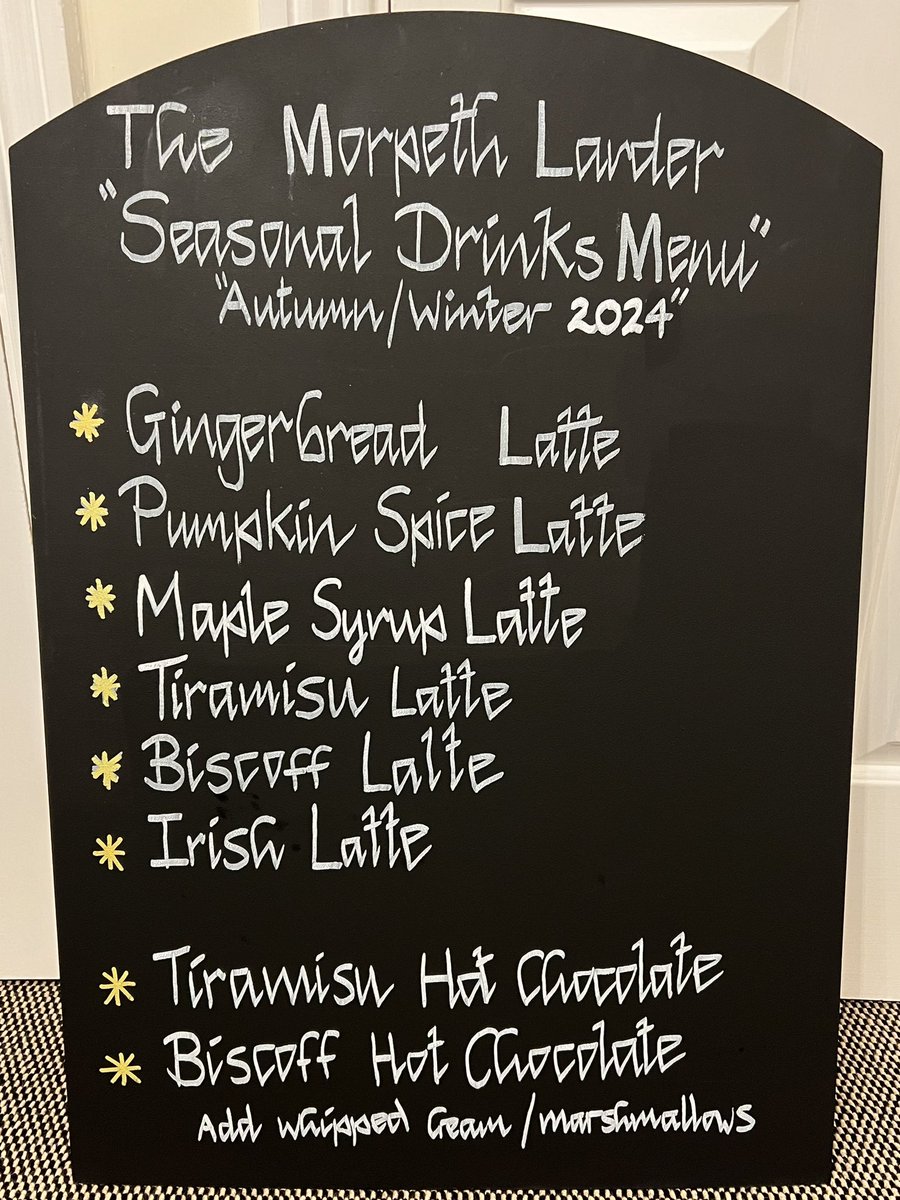 The Morpeth Larder
"Seasonal Drinks Menu"
"Autumn/Winter 2024"
* Gingerbread Latte
* Pumpkin Spice Latte
* Maple Syrup Latte
* Tiramisu Latte
* Biscoff Latte
* Irish Latte
* Tiramisu Hot Chocolate
* Biscoff Hot Chocolate
Add whipped Cream/marshmallows